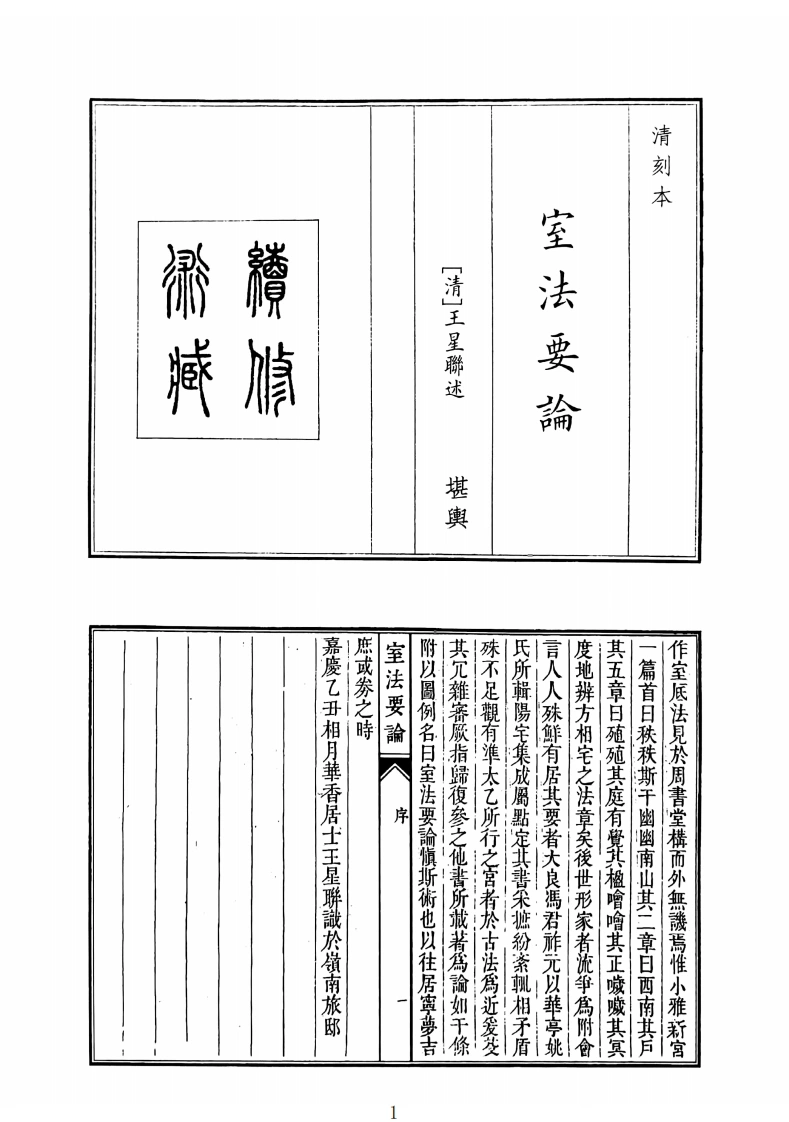 清刻本
室法要論
[清]王星聯述 堪輿
續修
術藏
作室底法見於周書堂構而外無譏焉惟小雅新宮
一篇首曰秩秩斯干幽幽南山其二章曰西南其戶
其五章曰殖殖其庭有覺其楹噲噲其正噦噦其冥
度地辨方相宅之法章矣後世形家者流爭為附會
言人人殊鮮有居其要者大良馮君祚元以華亭姚
氏所輯陽宅集成屬點定其書采摭紛紊輒相矛盾
殊不足觀有準太乙所行之宮者於古法為近爰芟
其冗雜審厥指歸復參之他書所載著為論如干條
附以圖例名曰室法要論愼斯術也以往居寧夢吉
室法要論 序 一
庶或劵之時
嘉慶乙丑相月華香居士王星聯識於嶺南旅邸
1